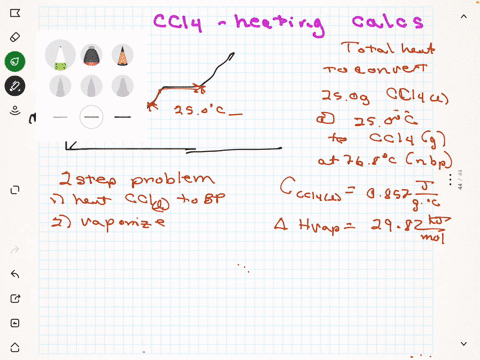 CCl4 - heating calcs
Total heat
to convert
25.0g CCl4(l)
@ 25.0°C
to CCl4(g)
at 76.8°C (nbp)
25.0°C
2 step problem
1) heat CCl4(l) to BP
2) vaporize
C CCl4(l) = 0.857 J/g·°C
ΔHvap = 29.82 kJ/mol